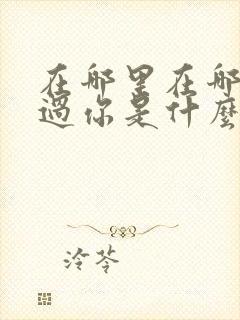 在那里在那
过你是什麼
冷苓